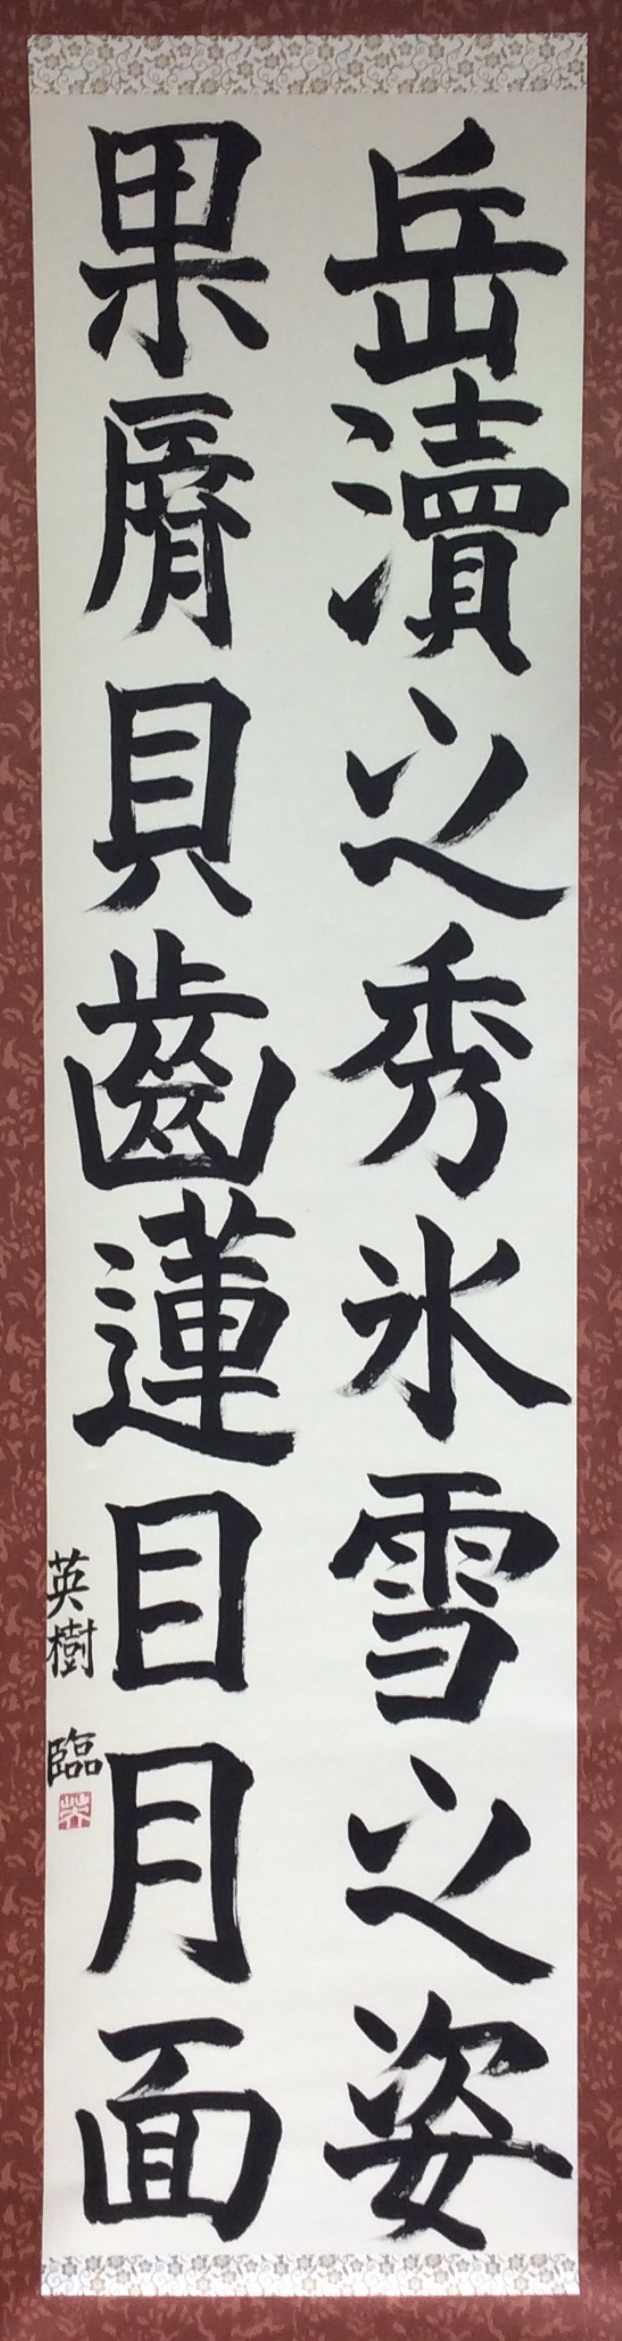 岳瀆之秀氷雪之姿
果脣貝齒蓮目月面
英樹 臨